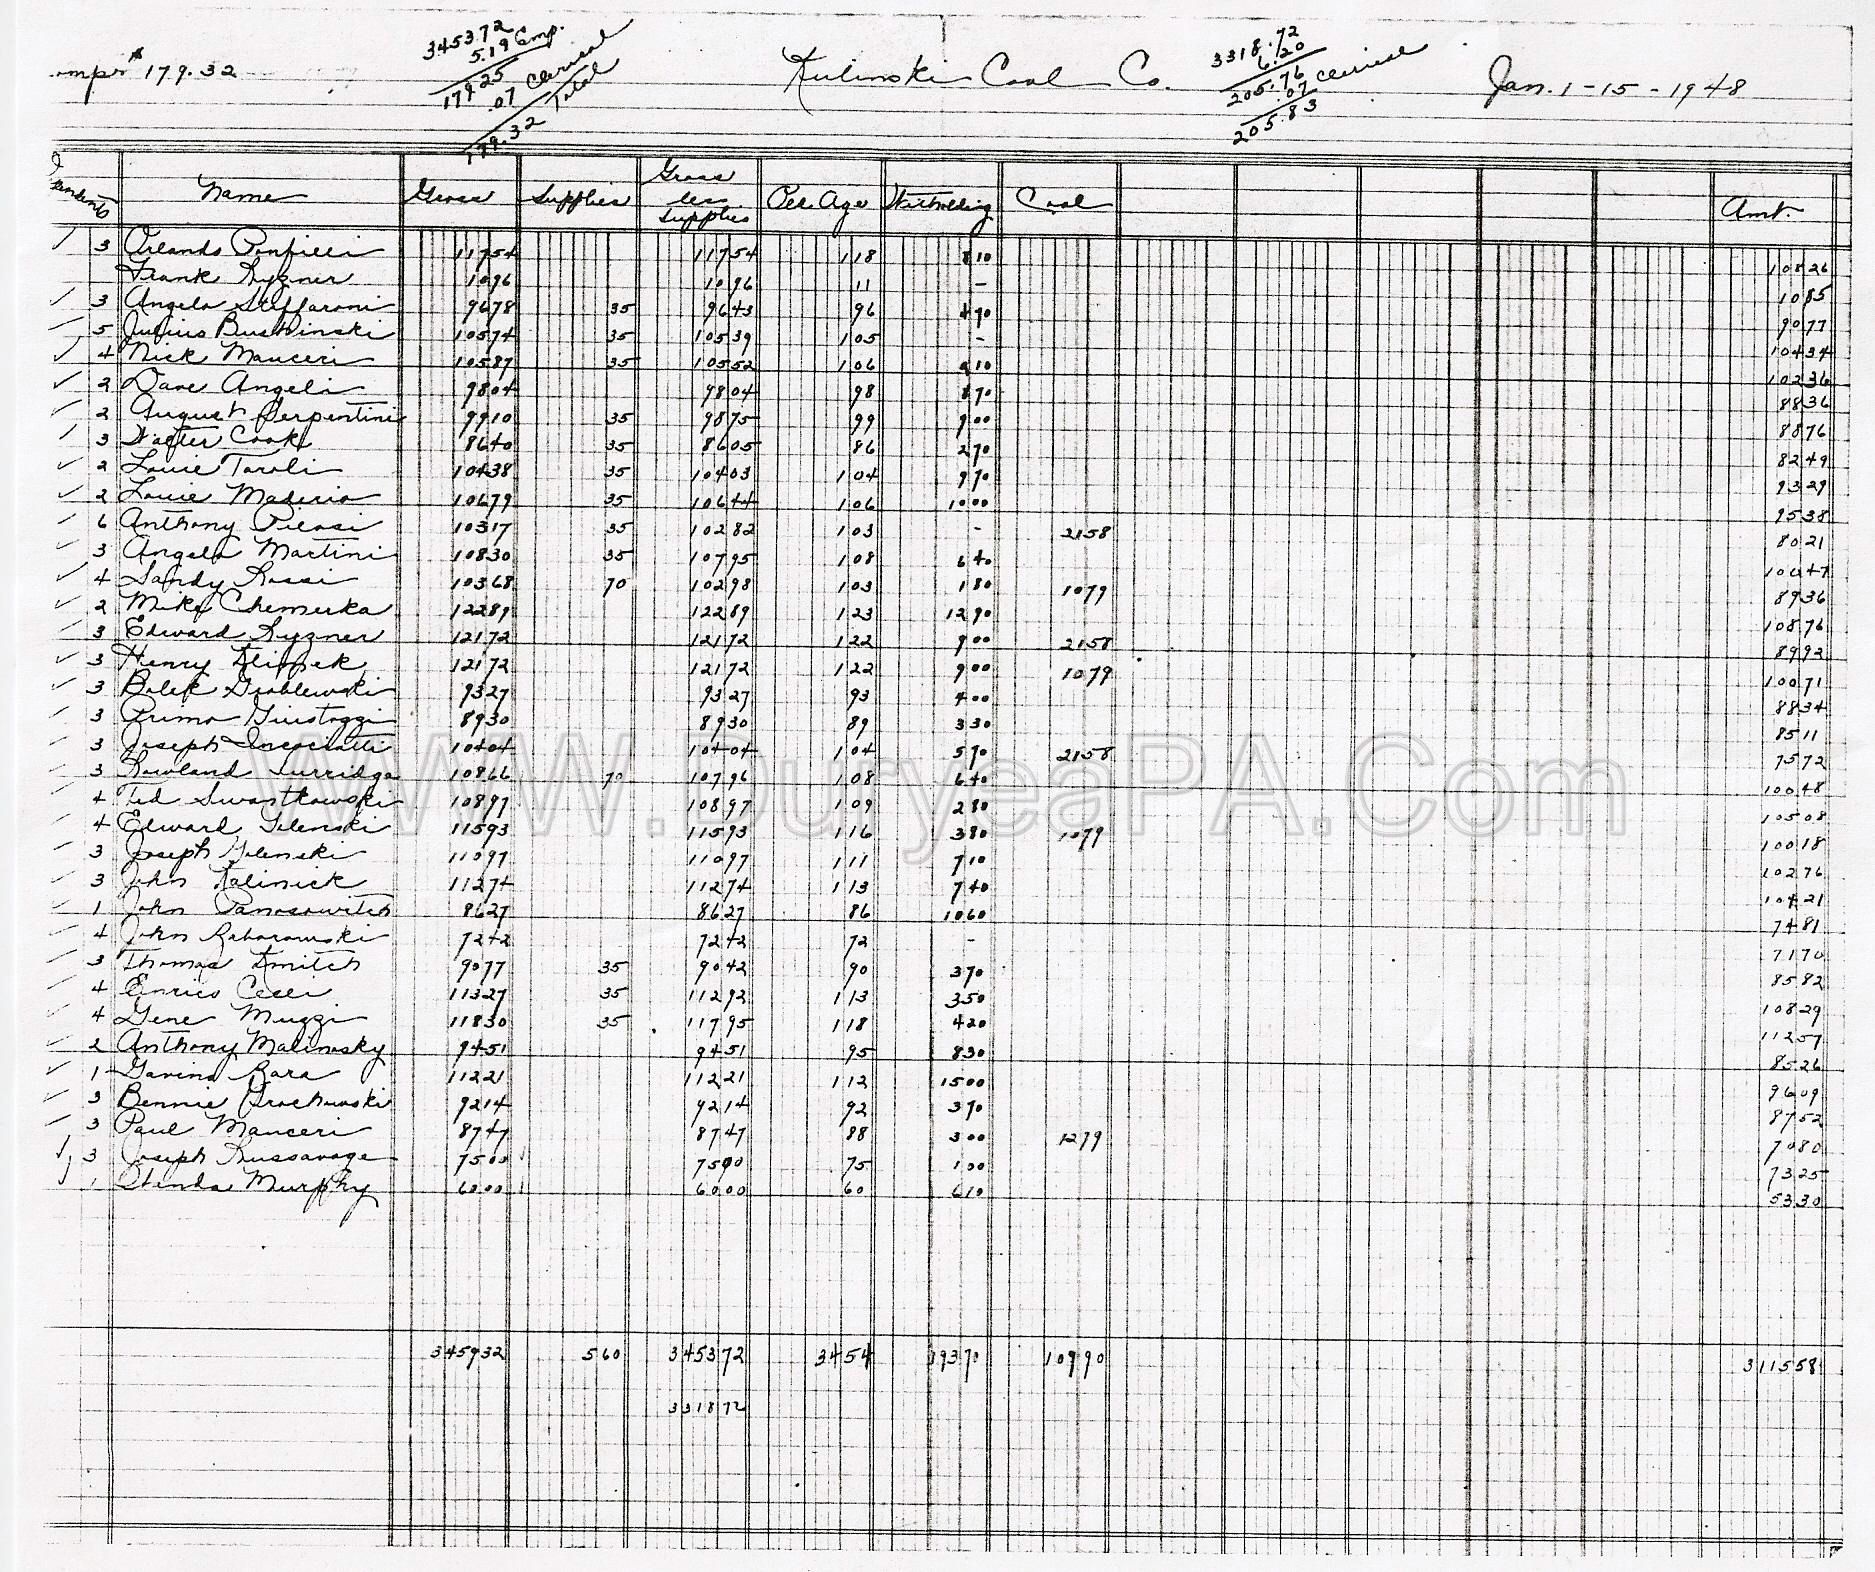 3453.72
5.19 Comp.
179.25
.07 Clerical
179.32 Total
179.32
Kulinski Coal Co.
3318.72
6.20
205.76
.07 Clerical
205.83
Jan. 1-15-1948
Name Gross Supplies Gross less Supplies Per. Age Withholding Coal Amt.
✓ 3 Orlando Ponfilli 11754 11754 118 810 10826
Frank Ryzner 1096 1096 11 - 1085
✓ 3 Angelo Steffaroni 9678 35 9643 96 470 9077
✓ 5 Julius Bushinski 10574 35 10539 105 - 10434
✓ 4 Nick Manceri 10587 35 10552 106 210 10236
✓ 2 Dave Angeli 9804 9804 98 870 8836
✓ 2 August Serpentini 9910 35 9875 99 900 8876
✓ 3 Walter Cook 8640 35 8605 86 270 8249
✓ 2 Louie Taroli 10438 35 10403 104 970 9329
✓ 2 Louie Maderia 10679 35 10644 106 1000 9538
✓ 6 Anthony Pilosi 10317 35 10282 103 - 2158 8021
✓ 3 Angelo Martini 10830 35 10795 108 640 10047
✓ 4 Sandy Rossi 10368 70 10298 103 180 1079 8936
✓ 2 Mike Chemerka 12289 12289 123 1290 10876
✓ 3 Edward Ryzner 12172 12172 122 900 2158 8992
✓ 3 Henry Klippek 12172 12172 122 900 1079 10071
✓ 3 Bolek Groblewski 9327 9327 93 400 8834
✓ 3 Primo Giustozzi 8930 8930 89 330 8511
✓ 3 Joseph Incociatti 10404 10404 104 570 2158 7572
✓ 3 Rowland Surridge 10866 70 10796 108 640 10048
✓ 4 Ted Swastkowski 10897 10897 109 280 10508
✓ 4 Edward Gelenski 11593 11593 116 380 1079 10018
✓ 3 Joseph Gelenski 11097 11097 111 710 10276
✓ 3 John Kalinick 11274 11274 113 740 10421
✓ 1 John Panasowitch 8627 8627 86 1060 7481
✓ 4 John Baboroski 7242 7242 72 - 7170
✓ 3 Thomas Dmitch 9077 35 9042 90 370 8582
✓ 4 Enrico Ceci 11327 35 11292 113 350 10829
✓ 4 Gene Muzzi 11830 35 11795 118 420 11257
✓ 2 Anthony Malinosky 9451 9451 95 830 8526
✓ 1 Gavino Bara 11221 11221 112 1500 9609
✓ 3 Bennie Prochowski 9214 9214 92 370 8752
✓ 3 Paul Manceri 8747 8747 88 300 1279 7080
✓ 3 Joseph Russavage 7500 7500 75 100 7325
✓ 1 Murphy 6000 6000 60 610 5330
345932 560 345372 3454 19370 10990 311558
331872
WWW.DuryeaPA.Com